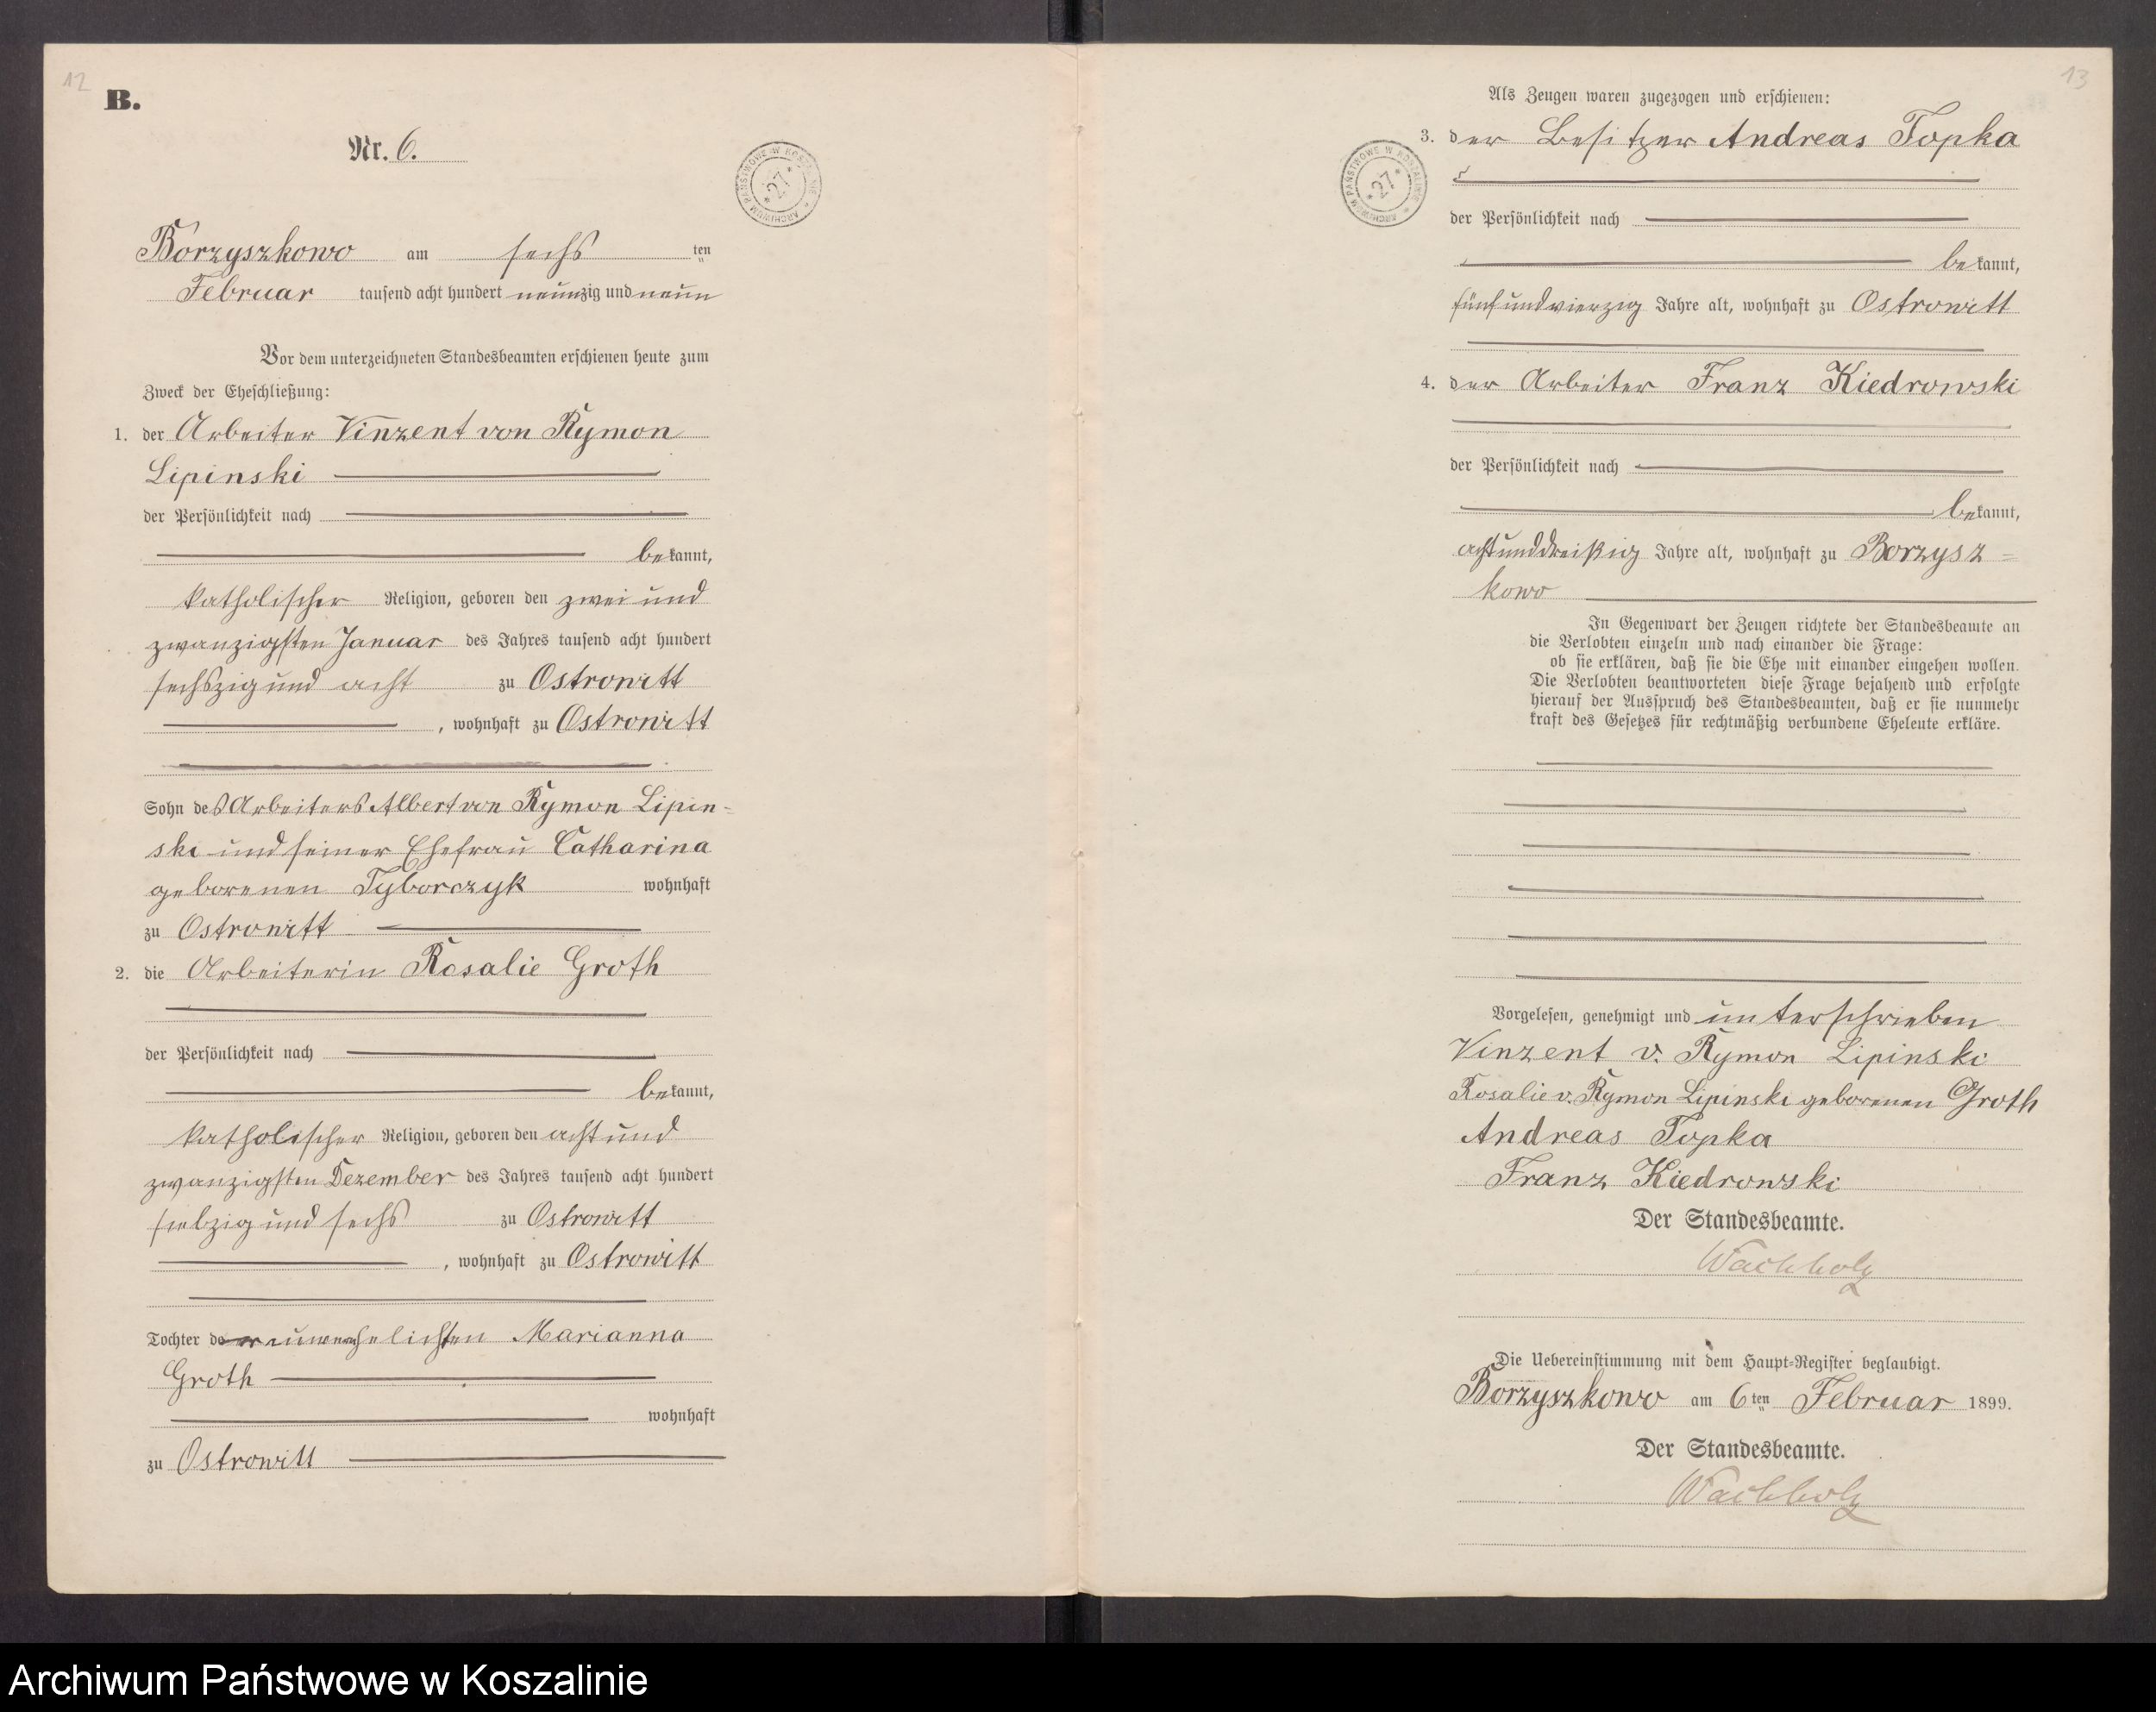 12
B.
Nr. 6.
ARCHIWUM PAŃSTWOWE W KOSZALINIE * 27 *
Borzyszkowo am sechs ten
Februar tausend acht hundert neunzig und neun
Vor dem unterzeichneten Standesbeamten erschienen heute zum
Zweck der Eheschließung:
1. der Arbeiter Vinzent von Rymon
Lipinski
der Persönlichkeit nach
bekannt,
katholischer Religion, geboren den zwei und
zwanzigsten Januar des Jahres tausend acht hundert
sechszig und acht zu Ostrowitt
, wohnhaft zu Ostrowitt
Sohn des Arbeiters Albert von Rymon Lipin-
ski und seiner Ehefrau Catharina
geborenen Tyborczyk wohnhaft
zu Ostrowitt
2. die Arbeiterin Rosalie Groth
der Persönlichkeit nach
bekannt,
katholischer Religion, geboren den acht und
zwanzigsten Dezember des Jahres tausend acht hundert
siebzig und sechs zu Ostrowitt
, wohnhaft zu Ostrowitt
Tochter der unverehelichten Marianna
Groth
wohnhaft
zu Ostrowitt
13
Als Zeugen waren zugezogen und erschienen:
ARCHIWUM PAŃSTWOWE W KOSZALINIE * 27 *
3. der Besitzer Andreas Topka
der Persönlichkeit nach
bekannt,
fünfundvierzig Jahre alt, wohnhaft zu Ostrowitt
4. der Arbeiter Franz Kiedrowski
der Persönlichkeit nach
bekannt,
achtunddreißig Jahre alt, wohnhaft zu Borzysz=
kowo
In Gegenwart der Zeugen richtete der Standesbeamte an
die Verlobten einzeln und nach einander die Frage:
ob sie erklären, daß sie die Ehe mit einander eingehen wollen.
Die Verlobten beantworteten diese Frage bejahend und erfolgte
hierauf der Ausspruch des Standesbeamten, daß er sie nunmehr
kraft des Gesetzes für rechtmäßig verbundene Eheleute erkläre.
Vorgelesen, genehmigt und unterschrieben
Vinzent v. Rymon Lipinski
Rosalie v. Rymon Lipinski geborenen Groth
Andreas Topka
Franz Kiedrowski
Der Standesbeamte.
Wachholz
Die Uebereinstimmung mit dem Haupt-Register beglaubigt.
Borzyszkowo am 6ten Februar 1899.
Der Standesbeamte.
Wachholz
Archiwum Państwowe w Koszalinie